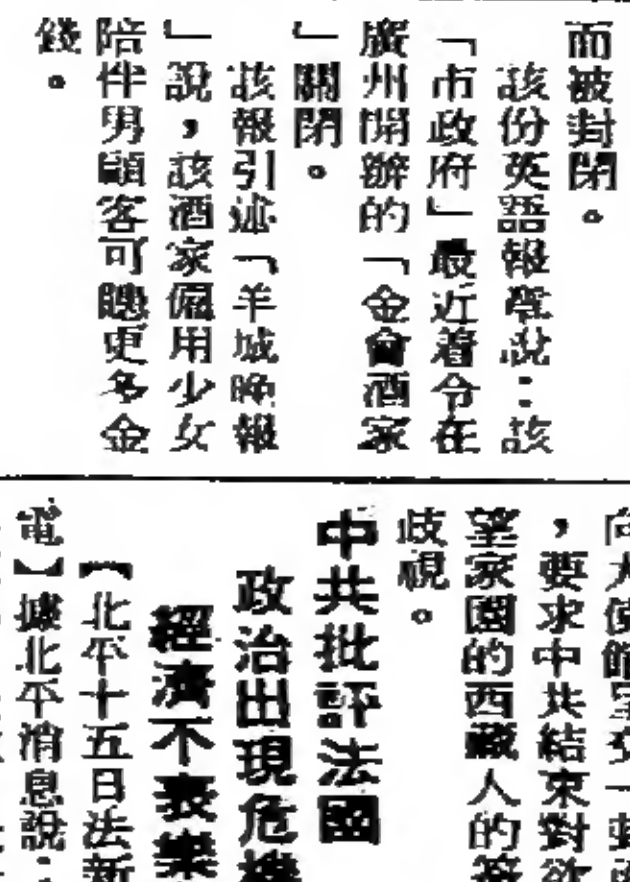 而被封閉。
該份英語報章說：該
「市政府」最近着令在
廣州開辦的「金會酒家
」關閉。
該報引述「羊城晚報
」說，該酒家僱用少女
陪伴男顧客可賺更多金
錢。
向大使館呈交一封
，要求中共結束對欲
望家園的西藏人的
歧視。
中共批評法國
政治出現危機
經濟不衰樂
【北平十五日法新
電】據北平消息說：